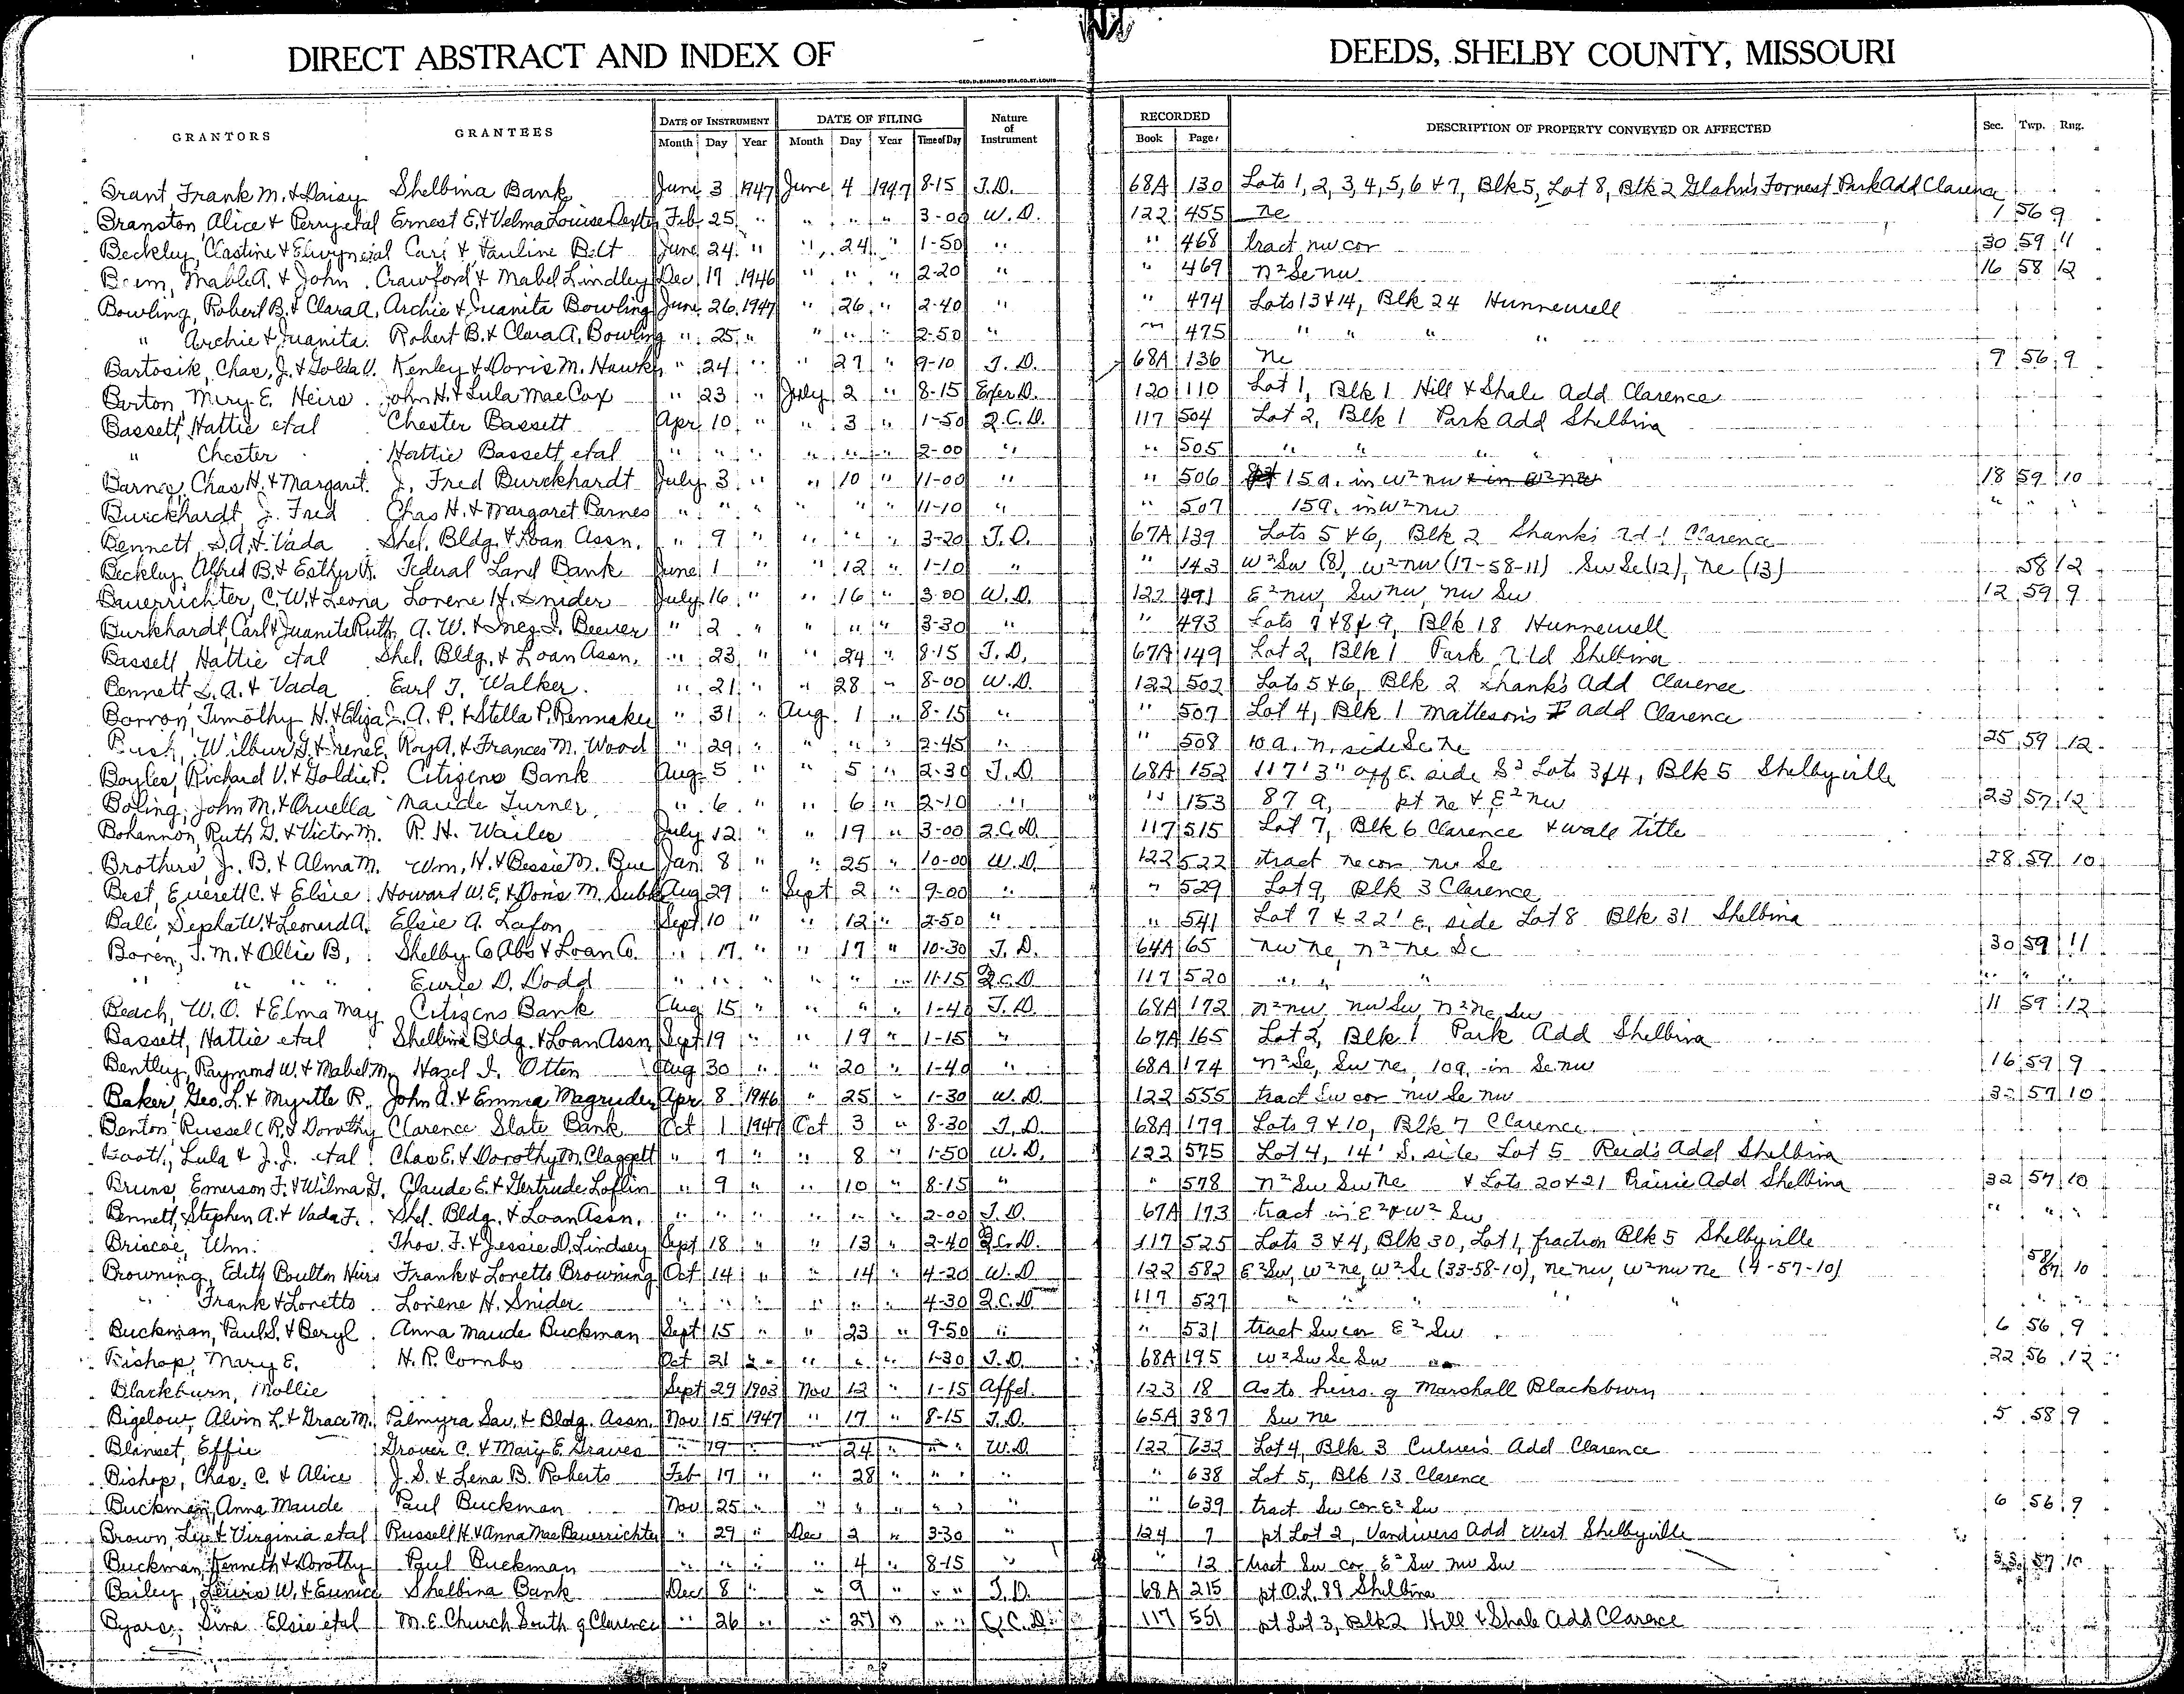 DIRECT ABSTRACT AND INDEX OF DEEDS, SHELBY COUNTY, MISSOURI
GEO. D. BARNARD STA. CO. ST. LOUIS
GRANTORS GRANTEES DATE OF INSTRUMENT DATE OF FILING Nature of Instrument RECORDED DESCRIPTION OF PROPERTY CONVEYED OR AFFECTED Sec. Twp. Rng.
Month Day Year Month Day Year Time of Day Book Page
Brant Frank M. & Daisy Shelbina Bank June 3 1947 June 4 1947 8-15 T.D. 68A 130 Lots 1, 2, 3, 4, 5, 6 & 7, Blk 5, Lot 8, Blk 2 Glahn's Forrest Park Add Clarence
Branston Alice & Perry etal Ernest E. & Velma Louise Feb 25 " " " " 3-00 W.D. 122 455 ne 1 56 9
Beckley, Clastine & etal Carl & Pauline Belt June 24 " " 24 " 1-50 " " 468 tract nw cor 30 59 11
Mable A. & John Crawford & Mabel Lindley Dec 17 1946 " " " 2-20 " " 469 n2 Se nw 16 58 12
Bowling, Robert B. & Clara A. Archie & Juanita Bowling June 26 1947 " 26 " 2-40 " " 474 Lots 13 & 14, Blk 24 Hunnewell
" Archie & Juanita Robert B. & Clara A. Bowling " 25 " " " " 2-50 " " 475 " " " "
Bartosik, Chas. J. & Golda V. Kenley & Doris M. Hawks " 24 " " 27 " 9-10 T.D. 68A 136 ne 9 56 9
Barton, Mary E. Heirs John H. & Lula Mae Cox " 23 " July 2 " 8-15 Exer D. 120 110 Lot 1, Blk 1 Hill & Shale Add Clarence
Bassett, Hattie etal Chester Bassett Apr 10 " " 3 " 1-50 Q.C.D. 117 504 Lot 2, Blk 1 Park Add Shelbina
" Chester Hattie Bassett etal " " " " " " 2-00 " " 505 " " " "
Barnes, Chas H. & Margaret J. Fred Burckhardt July 3 " " 10 " 11-00 " " 506 15 a. in w2 nw & in w2 nw 18 59 10
Burckhardt, J. Fred Chas H. & Margaret Barnes " " " " " " 11-10 " " 507 15 a. in w2 nw " " "
Bennett, S.A. & Vada Shel. Bldg. & Loan Assn. " 9 " " " " 3-20 T.D. 67A 139 Lots 5 & 6, Blk 2 Shank's Add Clarence
Beckley, Alfred B. & Esther Federal Land Bank June 1 " " 12 " 1-10 " " 143 w2 Sw (8), w2 nw (17-58-11) Sw Se (12), ne (13) 58 12
Bauerrichter, C.W. & Leona Lorene H. Snider July 16 " " 16 " 3-00 W.D. 122 491 E2 nw, Sw nw, nw Sw 12 59 9
Burkhardt, Carl & Juanita Ruth A. W. & Inez I. Beever " 2 " " " " 3-30 " " 493 Lots 7 & 8 & 9, Blk 18 Hunnewell
Bassett Hattie etal Shel. Bldg. & Loan Assn. " 23 " " 24 " 8-15 T.D. 67A 149 Lot 2, Blk 1 Park Add Shelbina
Bennett S.A. & Vada Earl T. Walker " 21 " " 28 " 8-00 W.D. 122 502 Lots 5 & 6, Blk 2 Shank's Add Clarence
Borron, Timothy H. & Eliza J. A. P. & Stella P. Rennaker " 31 " Aug. 1 " 8-15 " " 507 Lot 4, Blk 1 Matteson's add Clarence
Bush, Wilbur G. & Irene E. Roy A. & Frances M. Wood " 29 " " " " 2-45 " " 508 10 a. n. side Se ne 25 59 12
Boyles, Richard V. & Goldie P. Citizens Bank Aug 5 " " 5 " 2-30 T.D. 68A 152 117' 3" off E. side S2 Lots 3 & 4, Blk 5 Shelbyville
Boling, John M. & Orvella Maude Turner " 6 " " 6 " 2-10 " " 153 87 a, pt ne & E2 nw 23 57 12
Bohannon, Ruth G. & Victor M. R. H. Wailes July 12 " " 19 " 3-00 Q.C.D. 117 515 Lot 7, Blk 6 Clarence & wall title
Brothers, J. B. & Alma M. Wm. H. & Bessie M. Bue Jan 8 " " 25 " 10-00 W.D. 122 522 tract ne cor nw Se 28 59 10
Best, Everett C. & Elsie Howard W.E. & Doris M. Aug 29 " Sept 2 " 9-00 " " 529 Lot 9, Blk 3 Clarence
Ball, Sepha W. & Leonard A. Elsie A. Lafon Sept 10 " " 12 " 2-50 " " 541 Lot 7 & 22' E. side Lot 8 Blk 31 Shelbina
Boren, T. M. & Ollie B. Shelby Co Abs & Loan Co. " 17 " " 17 " 10-30 T.D. 64A 65 nw ne, n2 ne Se 30 59 11
" " " " Eurie D. Dodd " " " " " " 11-15 Q.C.D. 117 520 " " " " " "
Beach, W. O. & Elma May Citizens Bank Aug 15 " " " " 1-40 T.D. 68A 172 n2 nw, nw Sw, n2 ne Sw 11 59 12
Bassett, Hattie etal Shelbina Bldg. & Loan Assn Sept 19 " " 19 " 1-15 " 67A 165 Lot 2, Blk 1 Park Add Shelbina
Bentley, Raymond W. & Mabel M. Hazel I. Otten Aug 30 " " 20 " 1-40 " 68A 174 n2 Se, Sw ne, 10a. in Se nw 16 59 9
Baker, Geo. L. & Myrtle R. John A. & Emma Magruder Apr 8 1946 " 25 " 1-30 W.D. 122 555 tract Sw cor nw Se nw 32 57 10
Benton, Russel R. & Dorothy Clarence State Bank Oct 1 1947 Oct 3 " 8-30 T.D. 68A 179 Lots 9 & 10, Blk 7 Clarence
Lula & J.J. etal Chas E. & Dorothy M. Claggett " 7 " " 8 " 1-50 W.D. 122 575 Lot 4, 14' S. side Lot 5 Reid's Add Shelbina
Bruns, Emerson F. & Wilma G. Claude E. & Gertrude Loflin " 9 " " 10 " 8-15 " " 578 n2 Sw Sw ne & Lots 20 & 21 Prairie Add Shelbina 32 57 10
Bennett, Stephen A. & Vada F. Shel. Bldg. & Loan Assn. " " " " " " 2-00 T.D. 67A 173 tract in E2 & W2 Sw " " "
Briscoe, Wm. Thos. F. & Jessie D. Lindsey Sept 18 " " 13 " 2-40 Q.C.D. 117 525 Lots 3 & 4, Blk 30, Lot 1, fraction Blk 5 Shelbyville
Browning, Edith Boulton Heirs Frank & Loretto Browning Oct 14 " " 14 " 4-20 W.D 122 582 E2 Sw, w2 ne, w2 Se (33-58-10), ne nw, w2 nw ne (4-57-10) 58/57 10
" Frank & Loretto Lorene H. Snider " " " " " " 4-30 Q.C.D. 117 527 " " " " " "
Buckman, Paul S. & Beryl Anna Maude Buckman Sept 15 " " 23 " 9-50 " " 531 tract Sw cor E2 Sw 6 56 9
Bishop, Mary E. H. R. Combs Oct 21 " " " " 1-30 T.D. 68A 195 w2 Sw Se Sw 22 56 12
Blackburn, Mollie Sept 29 1903 Nov 13 " 1-15 Affd. 123 18 As to heirs of Marshall Blackburn
Bigelow, Alvin L. & Grace M. Palmyra Sav. & Bldg. Assn. Nov 15 1947 " 17 " 8-15 T.D. 65A 387 Sw ne 5 58 9
Blanset, Effie Grover C. & Mary E. Graves " 19 " " 24 " " " W.D 122 632 Lot 4, Blk 3 Culver's Add Clarence
Bishop, Chas. C. & Alice J. S. & Lena B. Roberts Feb 17 " " 28 " " " " " 638 Lot 5, Blk 13 Clarence
Buckman, Anna Maude Paul Buckman Nov 25 " " " " " " " " 639 tract Sw cor E2 Sw 6 56 9
Brown, & Virginia etal Russell H. & Anna Mae Bauerrichter " 29 " Dec 2 " 3-30 " 124 7 pt Lot 2, Vandivers Add West Shelbyville
Buckman, Kenneth & Dorothy Paul Buckman " " " " 4 " 8-15 " " 12 tract Sw cor E2 Sw nw Sw 33 57 10
Bailey, Lewis W. & Eunice Shelbina Bank Dec 8 " " 9 " " " T.D. 68A 215 pt O.L. 89 Shelbina
Byars, Sina Elsie etal M.E. Church South of Clarence " 26 " " 27 " " " Q.C.D. 117 551 pt Lot 3, Blk 2 Hill & Shale Add Clarence